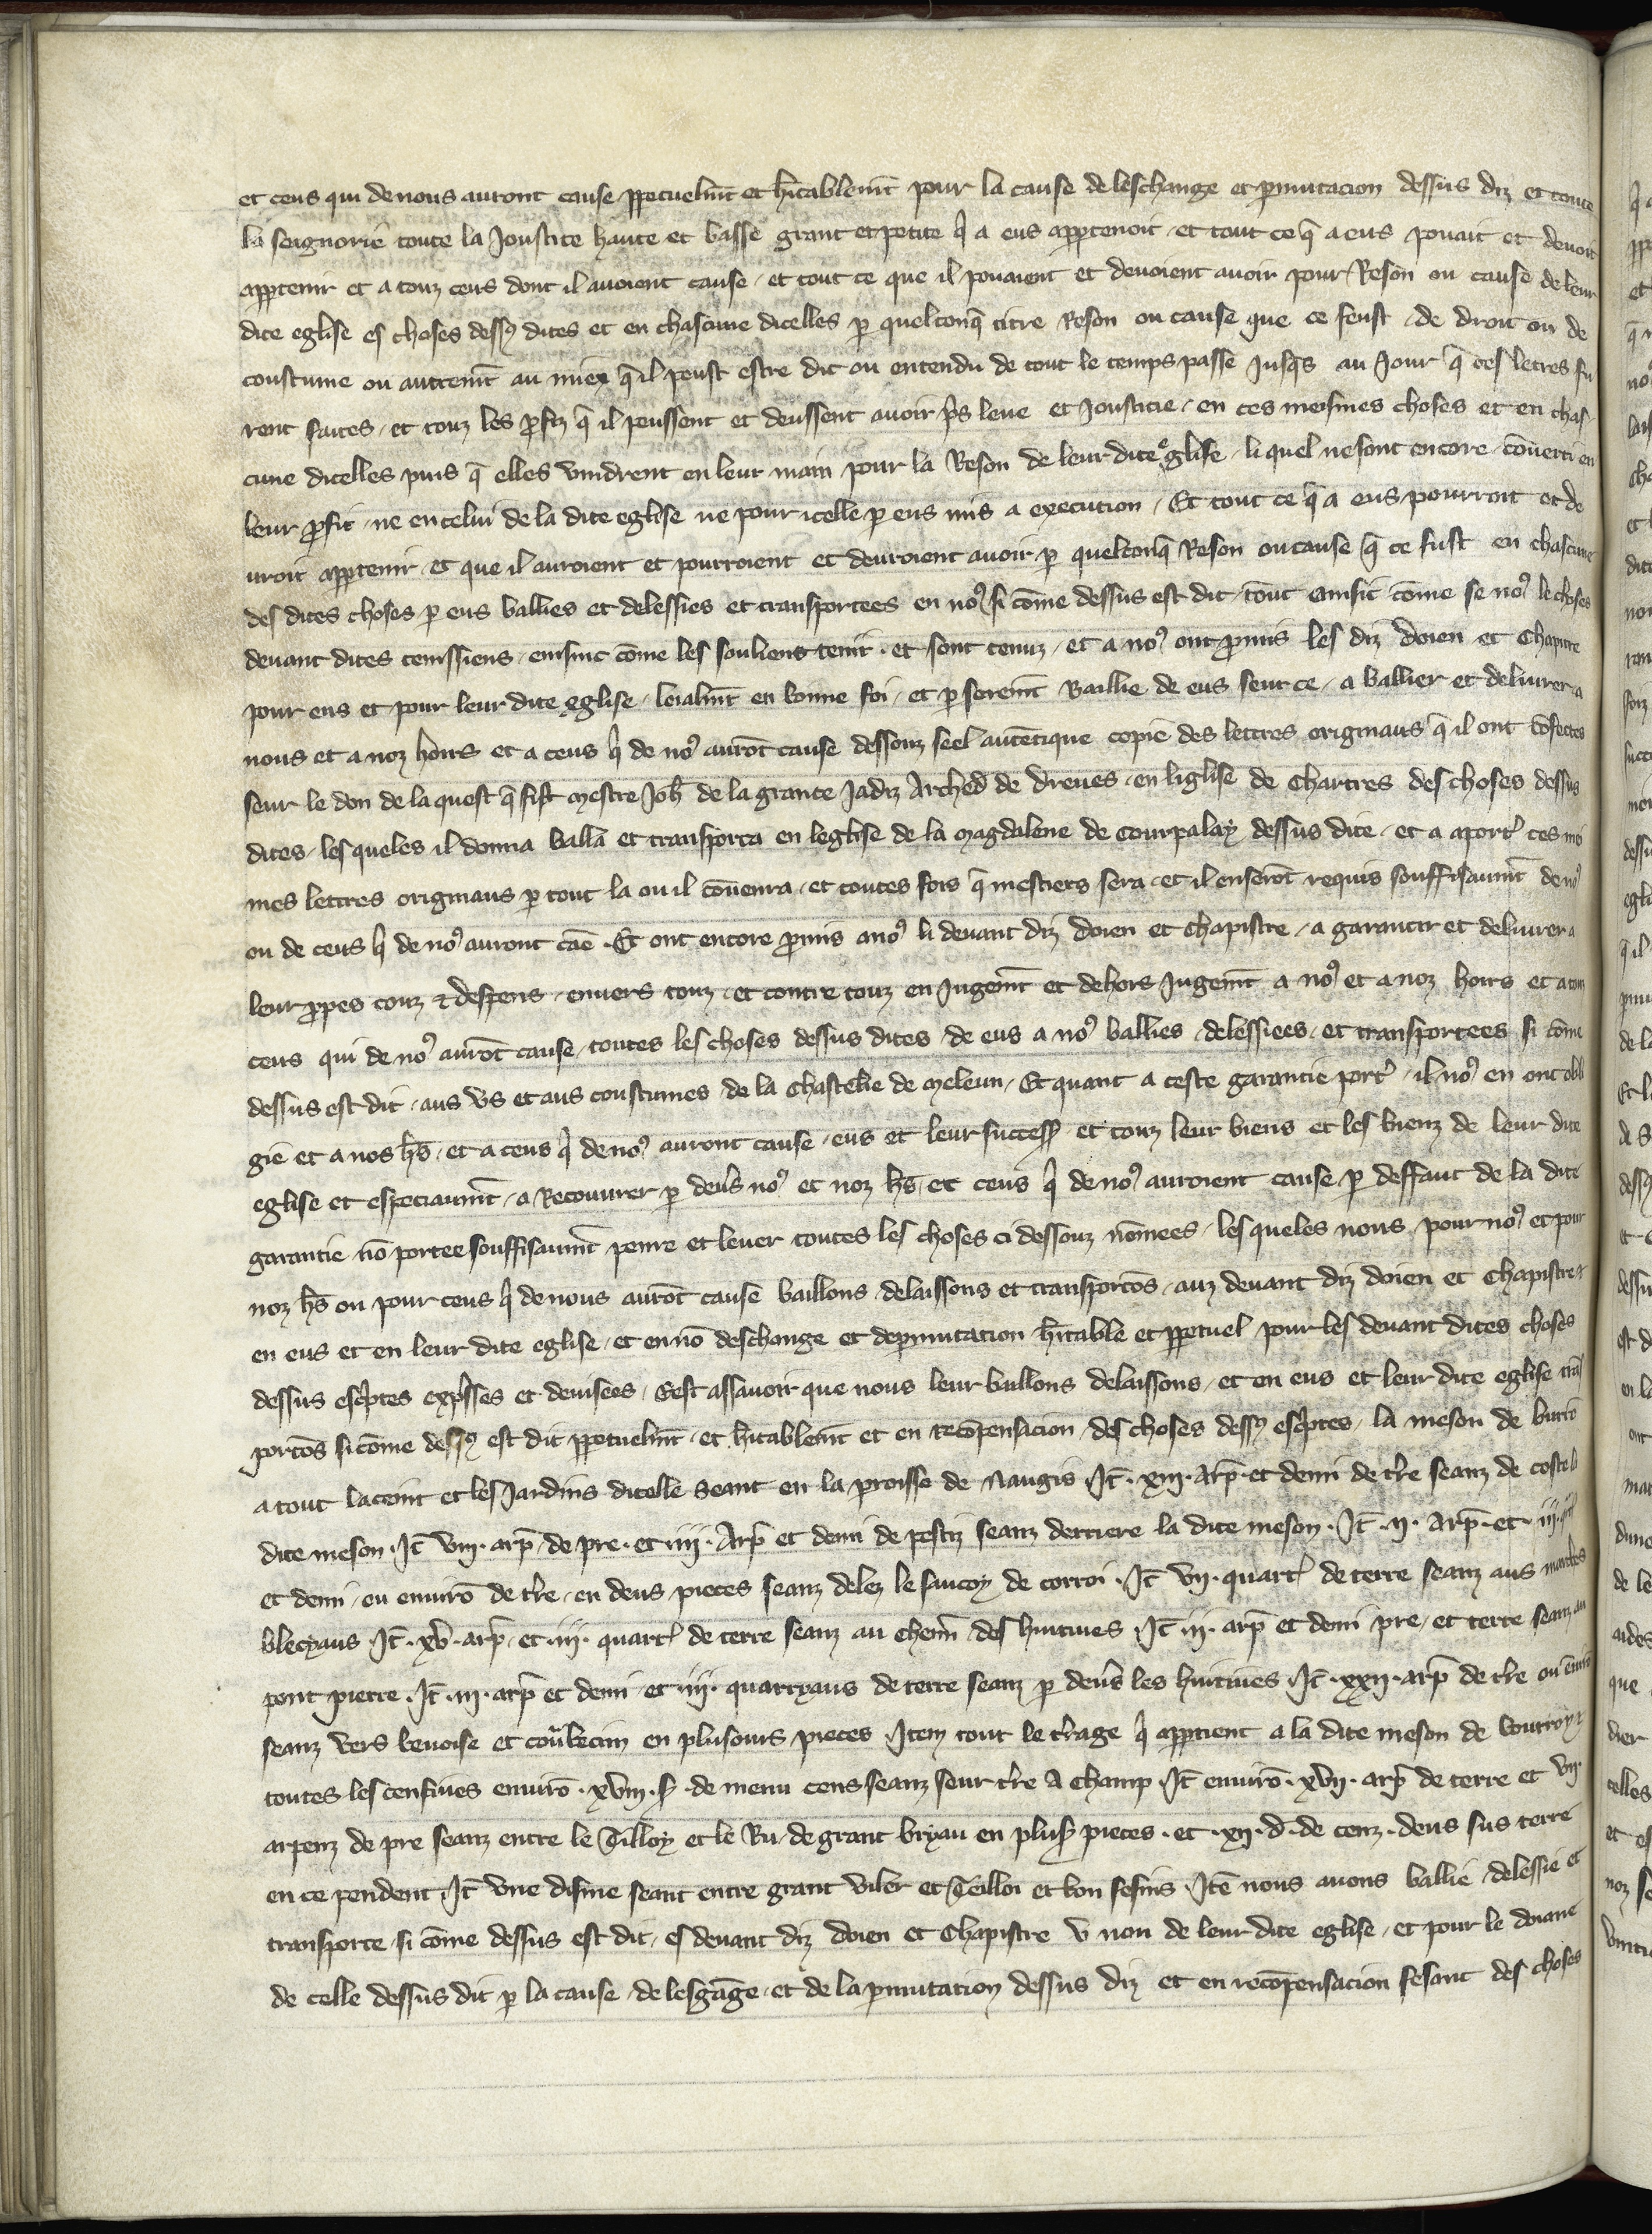 et ceus qui de nous auront cause ꝑpetuelmt et h̄itablemt pour la cause de leschange et ꝑmutacion dessus diz et toute
la seignorie toute la Joustice haute et basse grant et petite q̄ a eus apꝑtenoit et tout ce q̄ a eus pouait et deuoit
apꝑtenir et a touz ceus dont il auoient cause et tout ce que il pouaient et deuoient auoir pour Reson ou cause de leur
dite eglise es choses dessꝰ dites et en chascune dicelles ꝑ quelconq̄ titre Reson ou cause que ce feust de droit ou de
coustume ou autremt au miex q̄ il peust estre dit ou entendu de tout le temps passe Jusq̄s au Jour q̄ ces letres fu
rent faites et touz les ꝓfiz q̄ il peussent et deussent auoir p̄s leue et Jousticie en ces meismes choses et en chas
cune dicelles puis q̄ elles vindrent en leur main pour la Reson de leur dite eglise li quel ne sont encore cōuerti en
leur ꝓfit ne en celui de la dite eglise ne pour icelle ꝑ eus mis a execution Et tout ce q̄ a eus pourroit et de
uroit apꝑtenir et que il auroient et pourroient et deuroient auoir ꝑ quelconq̄ Reson ou cause q̄ ce fust en chascune
des dites choses ꝑ eus ballies et delessies et transportees en noꝰ si cōme dessus est dit tout ainsit cōme se noꝰ le choses
deuant dites tenissiens einsinc cōme les souliens tenir et sont tenuz et a noꝰ ont ꝓmis les diz doien et Chapitre
pour eus et pour leur dite eglise loialmt en bonne foi et ꝑ seremt Baillie de eus seur ce a ballier et deliurer a
nous et a noz hoirs et a ceus q̄ de noꝰ aurōt cause dessouz seel autētique copie des lettres originaus q̄ il ont
seur le don de la quest q̄ fist mestre Joh̄ de la grante Jadiz Arched̄ de dreues en liglise de Chartres des choses dessus
dites les queles il donna balla et transporta en leglise de la magdalene de Courpalay dessus dite et a aport̄ ces mei
mes lettres originaus ꝑ tout la ou il cōuenra et toutes fois q̄ mestiers sera et il en serōt requis souffisaumt de noꝰ
ou de ceus q̄ de noꝰ auront cāe Et ont encore ꝓmis a noꝰ li deuant diz doien et Chapistre a garantir et deliurer a
leur ꝓpes couz ⁊ despens enuers touz et contre touz en Jugemt et dehors Jugemt a noꝰ et a noz hoirs et a touz
ceus qui de noꝰ aurōt cause toutes les choses dessus dites de eus a noꝰ ballies delessiees et transportees si cōme
dessus est dit aus vs et aus coustumes de la Chastelie de meleun Et quant a ceste garantie port̄ il noꝰ en ont obli
gie et a nos h̄s et a ceus q̄ de noꝰ auront cause eus et leur success̄ et touz leur biens et les bienz de leur dite
eglise et especiaumt a Recouurer ꝑ deu̾s noꝰ et noz h̄s et ceus q̄ de noꝰ auroient cause ꝑ deffaut de la dite
garantie nō portee souffisaumt penre et leuer toutes les choses ci dessouz nōmees les queles nous pour noꝰ et pour
noz h̄s ou pour ceus q̄ de nous aurōt cause baillons delaissons et transportōs auz deuant diz doien et Chapistre et
en eus et en leur dite eglise et en nō deschange et de ꝑmutation h̄itable et ꝑpetuel pour les deuant dites choses
dessus esc̄ptes exp̄sses et deuisees Cest assauoir que nous leur ballons delaissons et en eus et leur dite eglise trās
portōs si cōme dessꝰ est dit ꝑpetuelmt et h̄itablemt et en recōpensacion des choses dessꝰ esc̄ptes la meson de
a tout laceint et les Jardins dicelle seant en la ꝑroisse de Nangis Jt̄ xiij arp̄ et demi de t̄re seanz de coste la
dite meson Jt̄ viij arp̄ de pre et iiij Arp̄ et demi de pestiz seanz derriere la dite meson Jt̄ ij arp̄ et iij
et demi ou enuirō de t̄re en deus pieces seanz delez le saucoy de corroi Jt̄ vij quart̄ de terre seanz aus
blecyaus Jt̄ xv arp̄ et iij quart̄ de terre seanz au chemī des huitiues Jt̄ iij arp̄ et demi pre et terre seanz au
pont pierre Jt̄ iij arp̄ et demi et iij quarryaus de terre seanz ꝑ deu̾s les huitiues Jt̄ xxij arp̄ de t̄re ou enuirō
seanz vers benoise et en plusours pieces Jtem tout le t̄rage q̄ apꝑtient a la dite meson de boutroy et
toutes les censiues enuirō xviij s̄ de menu cens seanz seur t̄re a champ Jt̄ enuirō xvij arp̄ de terre et vij
arpenz de pre seanz entre le Tilloy et le Ru de grant bryau en plus̄ pieces et xij d̄ de cenz deus sus terre
en ce pendent Jt̄ vne disme seant entre grant viler et Teilloi et bon fesins Jtē nous auons ballie delessie et
transporte si cōme dessus est dit es deuant diz doien et Chapistre v non de leur dite eglise et pour le doiane
de celle dessus dit ꝑ la cause de lesgāge et de la ꝑmutation dessus diz et en recōpensacion fesant des choses